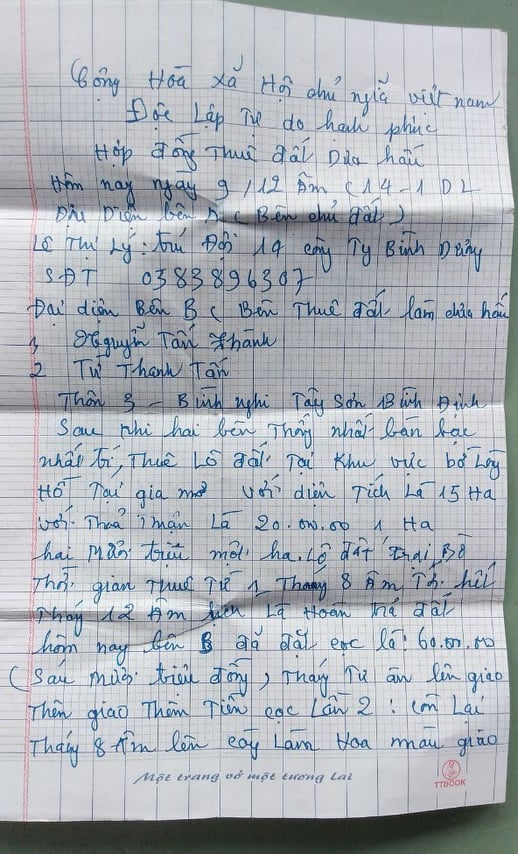 Cộng Hoà xã Hội chủ nghĩa việt nam
Độc Lập Tự do hanh phúc
Hợp đồng Thuê đất Dưa hấu
Hôm nay ngày 9/12 Âm (14-1 DL
Đại Diện bên A ( Bên chủ đất )
Lê Thị Lý : trú Đội 19 công Ty Bình Dương
SĐT 0383896307
Đại diện Bên B ( Bên Thuê đất làm dưa hấu
1 Nguyễn Tấn Thành
2 Từ Thanh Tấn
Thôn 3 - Bình nghi Tây Sơn Bình Định
Sau khi hai bên Thống nhất bàn bạc
nhất trí, Thuê Lô đất Tại Khu vực bờ Lòng
Hồ Tại gia mơ với diện Tích Là 15 Ha
với Thoả Thuận Là 20.00.00 1 Ha
hai Mươi triệu một ha. Lô đất Trại Bò
Thời gian Thuê Từ 1 Tháng 8 Âm Tới hết
Tháng 12 Âm Là Hoàn trả đất
hôm nay bên B đã đặt cọc là: 60.00.00
( Sáu Mươi triệu đồng ) Tháng Tư âm lên giao
Thên giao Thêm Tiền cọc Lần 2 : còn Lại
Tháng 8 Âm lên cày Làm Hoa màu giao
Một trang vở một tương lai
TTBOOK